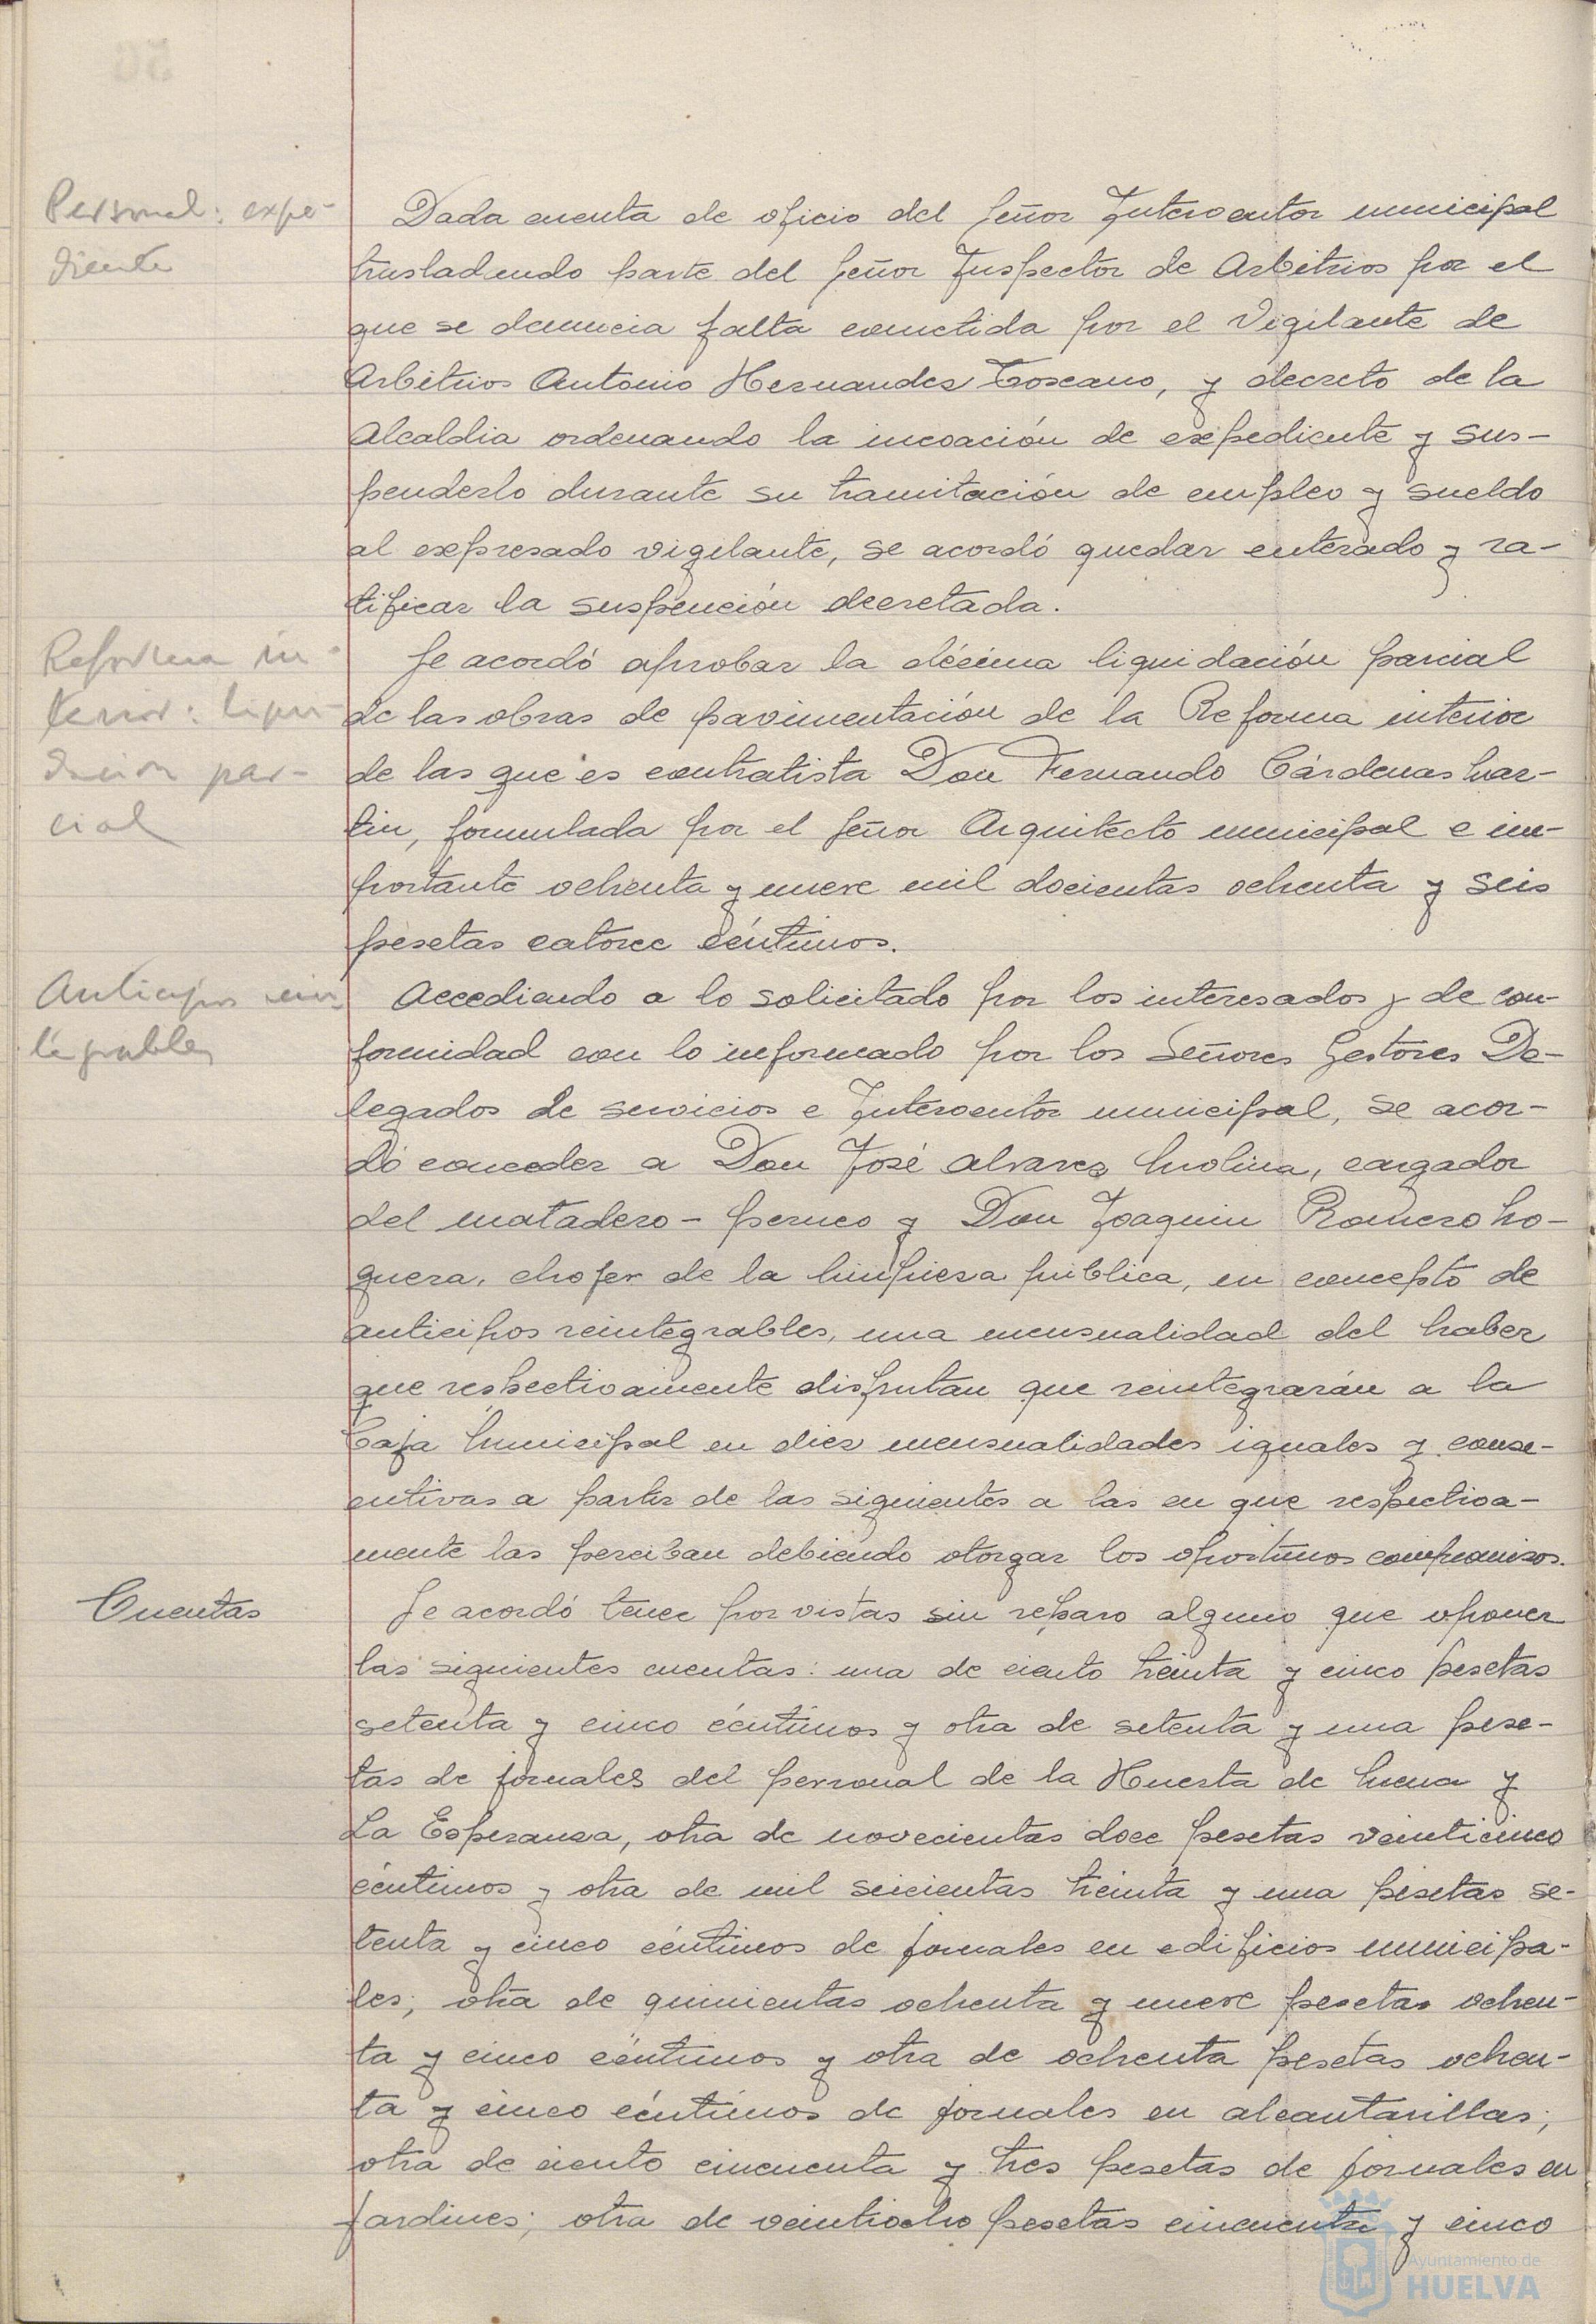 Personal: expe-
diente
Dada cuenta de oficio del Señor Interventor municipal
trasladando parte del Señor Inspector de Arbitrios por el
que se denuncia falta cometida por el Vigilante de
Arbitrios Antonio Hernandez Toscano, y decreto de la
Alcaldia ordenando la incoación de expediente y sus-
penderlo durante su tramitación de empleo y sueldo
al expresado vigilante, se acordó quedar enterado y ra-
tificar la suspención decretada.
Reforma in-
terior: liqui-
dacion par-
cial
Se acordó aprobar la décima liquidación parcial
de las obras de pavimentación de la Reforma interior
de las que es contratista Don Fernando Cárdenas Mar-
tin, formulada por el Señor Arquitecto municipal e im-
portante ochenta y nueve mil docientas ochenta y seis
pesetas catorce céntimos.
Anticipos rein
tegrables
Accediendo a lo solicitado por los interesados y de con-
formidad con lo informado por los Señores Gestores De-
legados de servicios e Interventor municipal, se acor-
dó conceder a Don José Alvarez Molina, cargador
del matadero- perneo y Don Joaquin Romero No-
guera, chofer de la limpieza pública, en concepto de
anticipos reintegrables, una mensualidad del haber
que respectivamente disfrutan que reintegrarán a la
Caja Municipal en diez mensualidades iguales y conse-
cutivas a partir de las siguientes a las en que respectiva-
mente las perciban debiendo otorgar los oportunos compromisos.
Cuentas
Se acordó tener por vistas sin reparo alguno que oponer
las siguientes cuentas: una de ciento treinta y cinco pesetas
setenta y cinco céntimos y otra de setenta y una pese-
tas de jornales del personal de la Huerta de Mena y
La Esperanza, otra de novecientas doce pesetas veinticinco
céntimos y otra de mil seicientas treinta y una pesetas se-
tenta y cinco céntimos de jornales en edificios municipa-
les; otra de quinientas ochenta y nueve pesetas ochen-
ta y cinco céntimos y otra de ochenta pesetas ochen-
ta y cinco céntimos de jornales en alcantarillas;
otra de ciento cincuenta y tres pesetas de jornales en
jardines; otra de veintiocho pesetas cincuenta y cinco
Ayuntamiento de
HUELVA